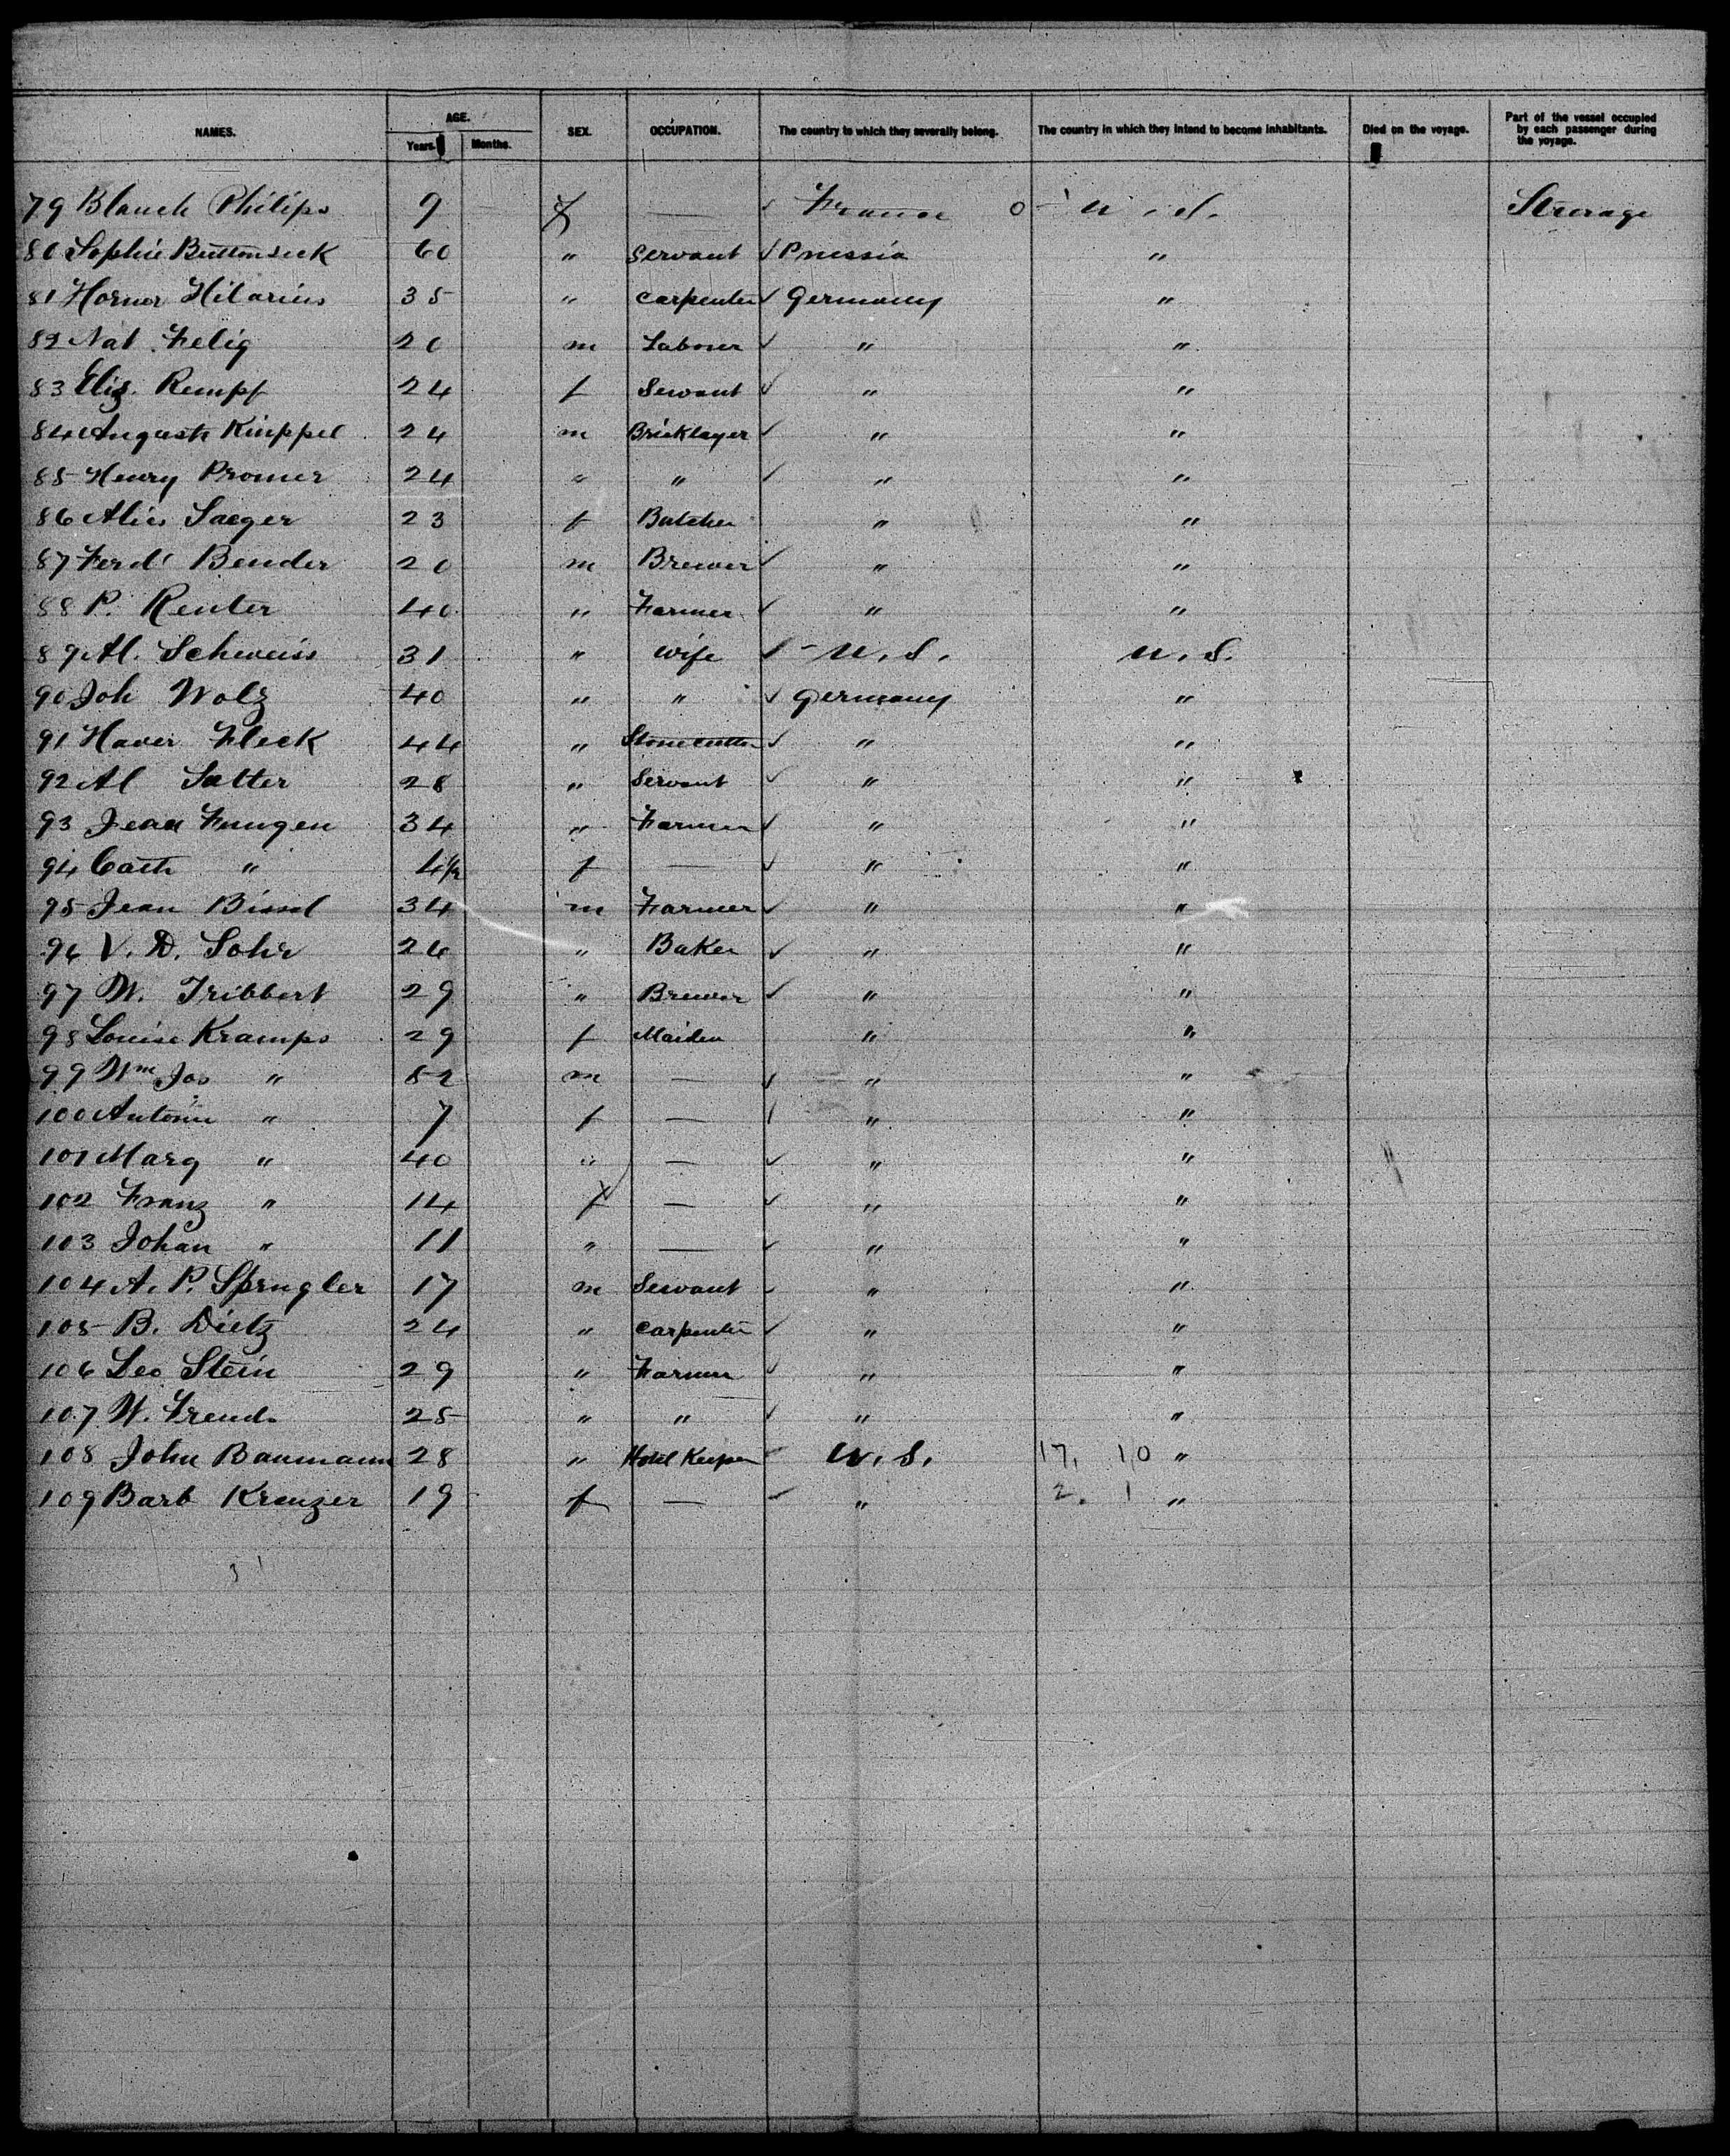 NAMES. AGE. SEX. OCCUPATION. The country to which they severally belong. The country in which they intend to become inhabitants. Died on the voyage. Part of the vessel occupied by each passenger during the voyage.
Years. Months.
79 Blanch Philips 9 f — France 0 U.S. Steerage
80 Sophie 60 " Servant Prussia "
81 Horner Hilarius 35 " Carpenter Germany "
82 Nat. Felig 20 m Laborer " "
83 Eliz. Rempf 24 f Servant " "
84 August Kinppel 24 m Bricklayer " "
85 Henry Promer 24 " " " "
86 Alies Saeger 23 f Butcher " "
87 Ferd' Bender 20 m Brewer " "
88 P. Renter 40 " Farmer " "
89 Al. Schweiss 31 " Wife U.S. U.S.
90 Joh Wolz 40 " " Germany "
91 Haver Fleck 44 " Stonecutter " "
92 Al Satter 28 " Servant " "
93 Jean Fungen 34 " Farmer " "
94 Cath " 4½ f — " "
95 Jean Bissel 34 m Farmer " "
96 V. D. Sohr 26 " Baker " "
97 W. Tribbert 29 " Brewer " "
98 Louise Kramps 29 f Maiden " "
99 Wm Jos " 52 m — " "
100 Antonie " 7 f — " "
101 Marg " 40 " — " "
102 Franz " 14 f — " "
103 Johan " 11 " — " "
104 A. P. Sprngler 17 m Servant " "
105 B. Dietz 24 " Carpenter " "
106 Leo Stein 29 " Farmer " "
107 W. Frends 25 " " " "
108 John Baumann 28 " Hotel Keeper U.S. 17. 10 "
109 Barb Kreuzer 19 f — " 2. 1 "
31